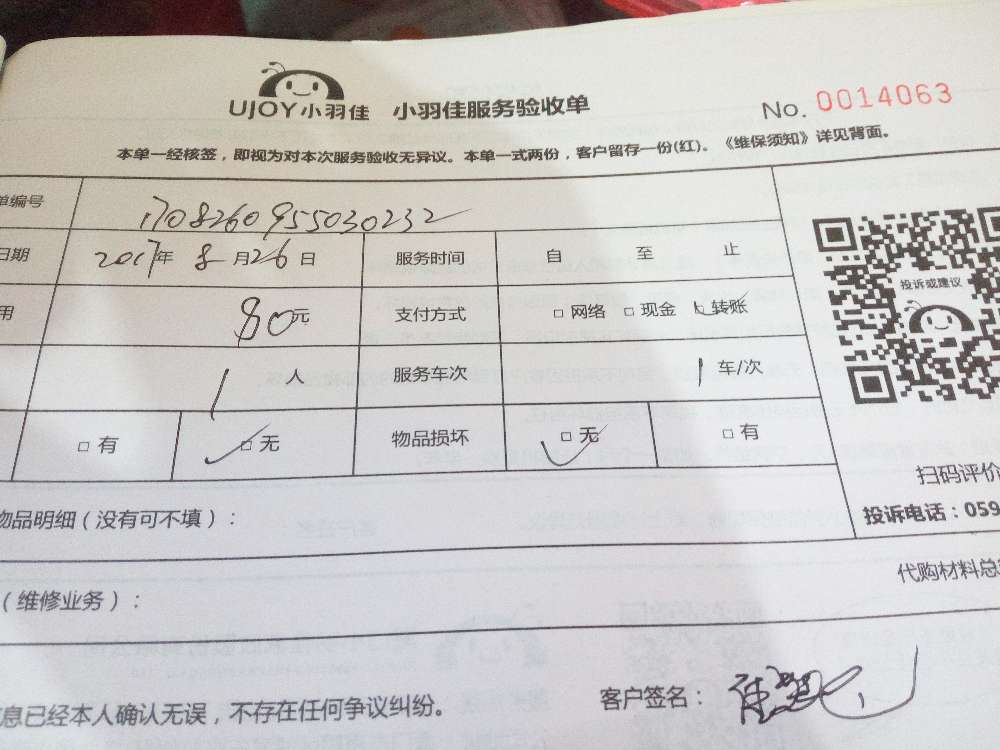 UJOY小羽佳 小羽佳服务验收单 No. 0014063
本单一经核签，即视为对本次服务验收无异议。本单一式两份，客户留存一份(红)。《维保须知》详见背面。
单编号 170826095503​0232
日期 2017年 8月26日 服务时间 自 至 止
用 80元 支付方式 □ 网络 □ 现金 □ 转账
1 服务车次 1 车/次
□ 有 □ 无 物品损坏 □ 无 □ 有
投诉或建议
扫码评价
物品明细（没有可不填）：
投诉电话：059
代购材料总
（维修业务）：
信息已经本人确认无误，不存在任何争议纠纷。 客户签名：